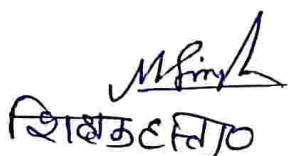 MSingh
शिक्षक हस्ता०